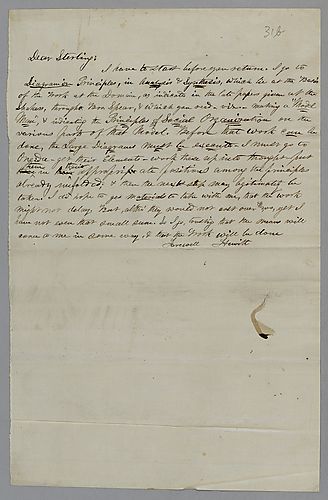 316
Dear Sterling:
I have to start before you return. I go to
Diagramise Principles, in Analysis & Synthesis, which lie at the Basis
of the Work at the Domain, as indicate in the late papers given at the
Spheres, through Mon Spear, & which you red. viz – making a Model
Man, & indicating the Principles of Social Organization on the
various parts of that Model. Before that work can be
done, the Large Diagrams must be execute. I must go to
– get their Elements – work them up into thought – put
them in their appropriate positions among the principles
already unfolded, & then the next step may legitimately be
taken. I did hope to get materials to take with me, that the work
might not delay. But altho they would not cost over two, yet I
have not even that small sum. So I go, trusting that the means will
come to me in some way, & that the Work will be done
Farewell Hewitt